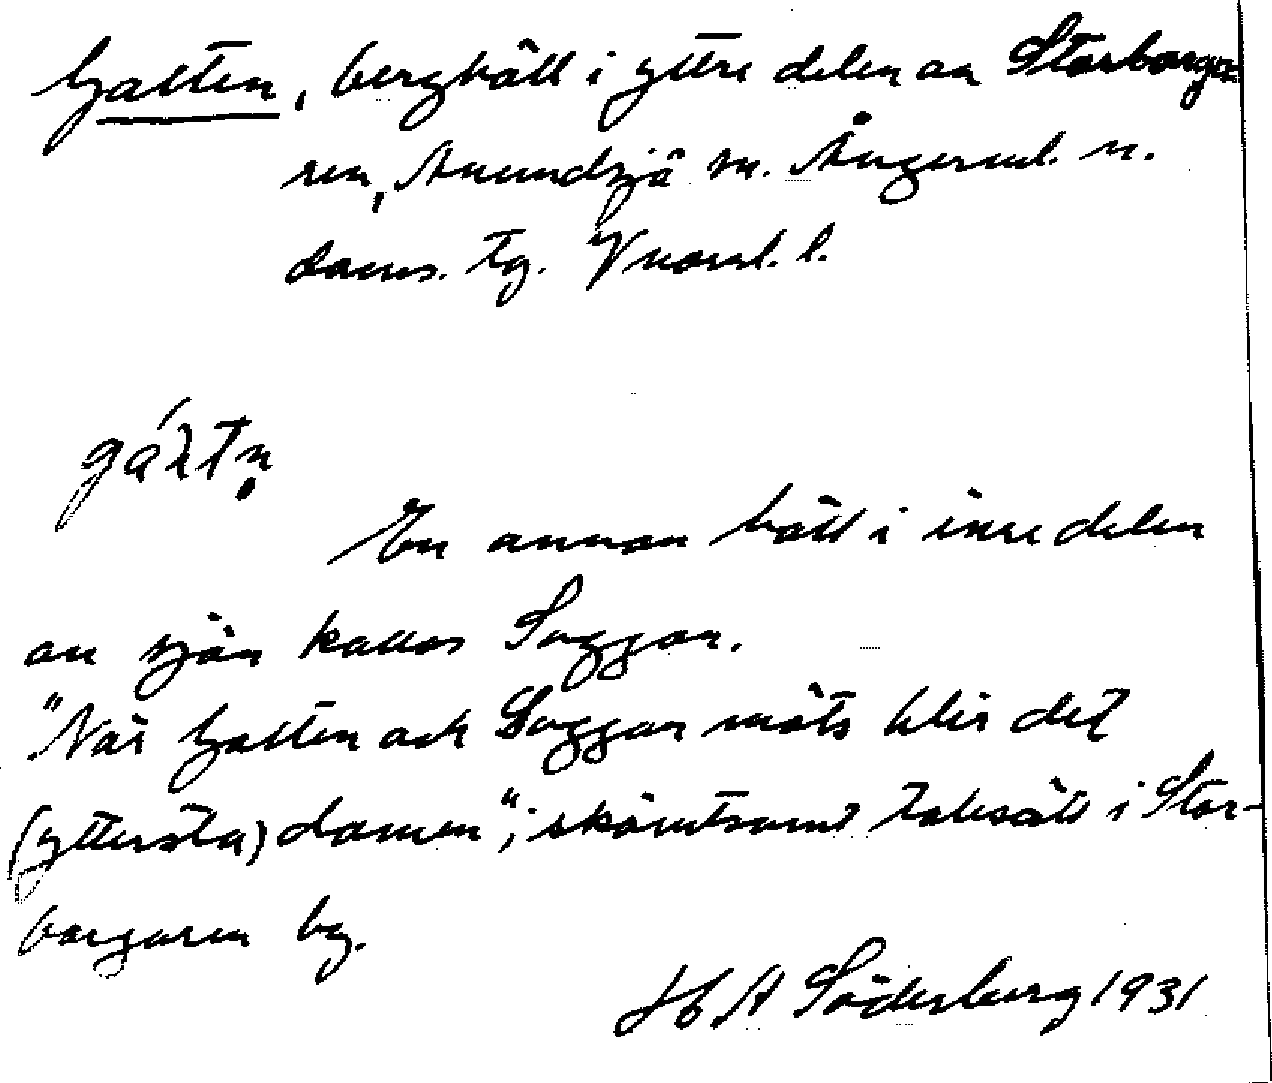 Galten, berghäll i yttre delen av Storborga-
ren, Anundsjö sn. Ångerml. n.
doms. tg. Vnorrl. l.
En annan häll i inre delen
av sjön kallas Suggan.
"När Galten och Suggan möts blir det
(yttersta) domen"; skämtsamt talesätt i Stor-
borgaren by.
H A Söderberg 1931